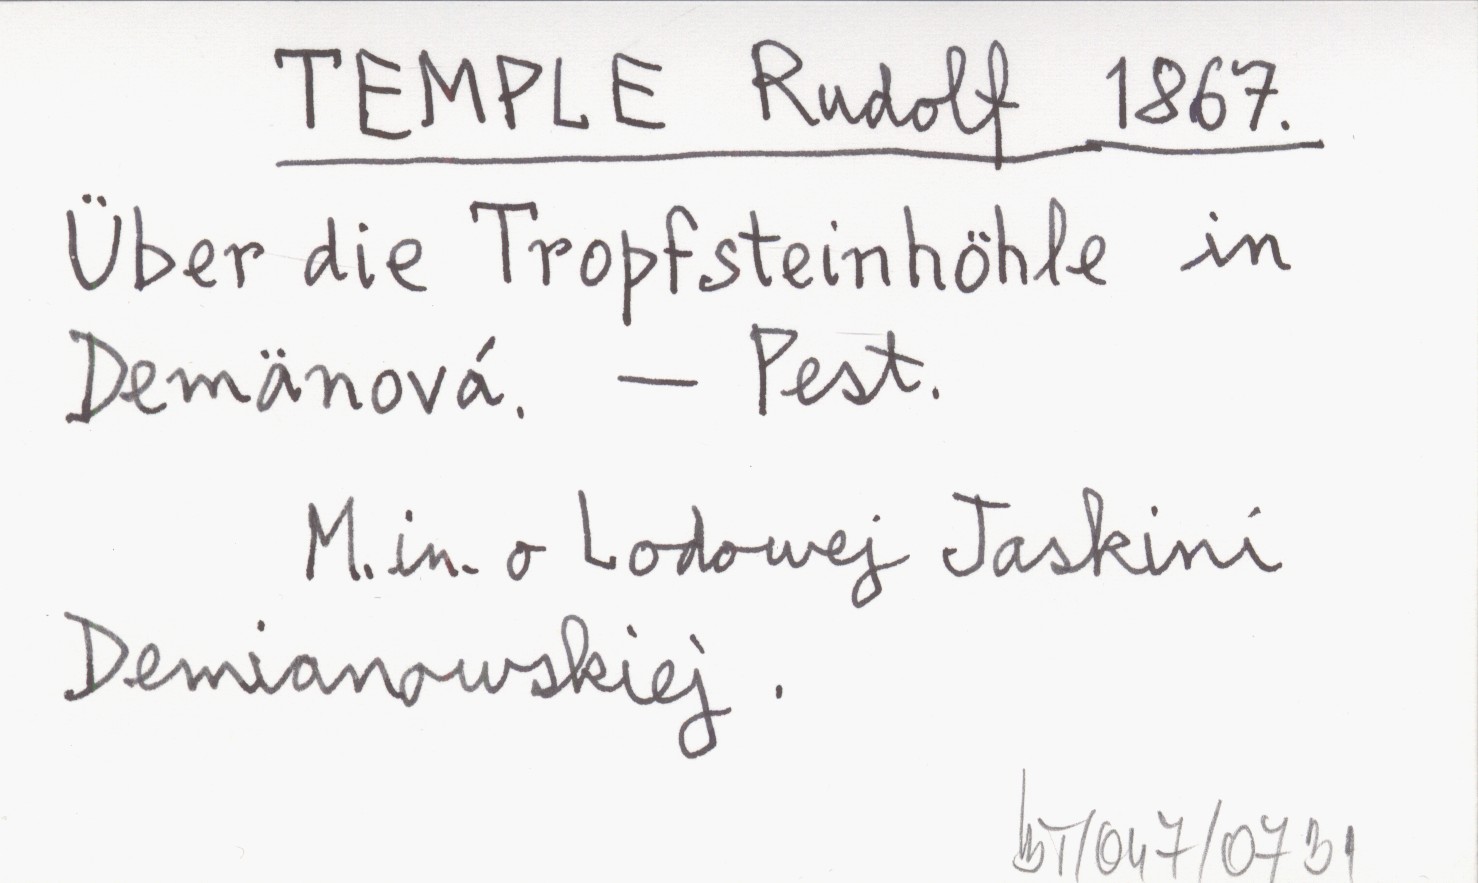 TEMPLE Rudolf 1867.
Über die Tropfsteinhöhle in
Demänová. — Pest.
M.in. o Lodowej Jaskini
Demianowskiej.
bT/047/0731